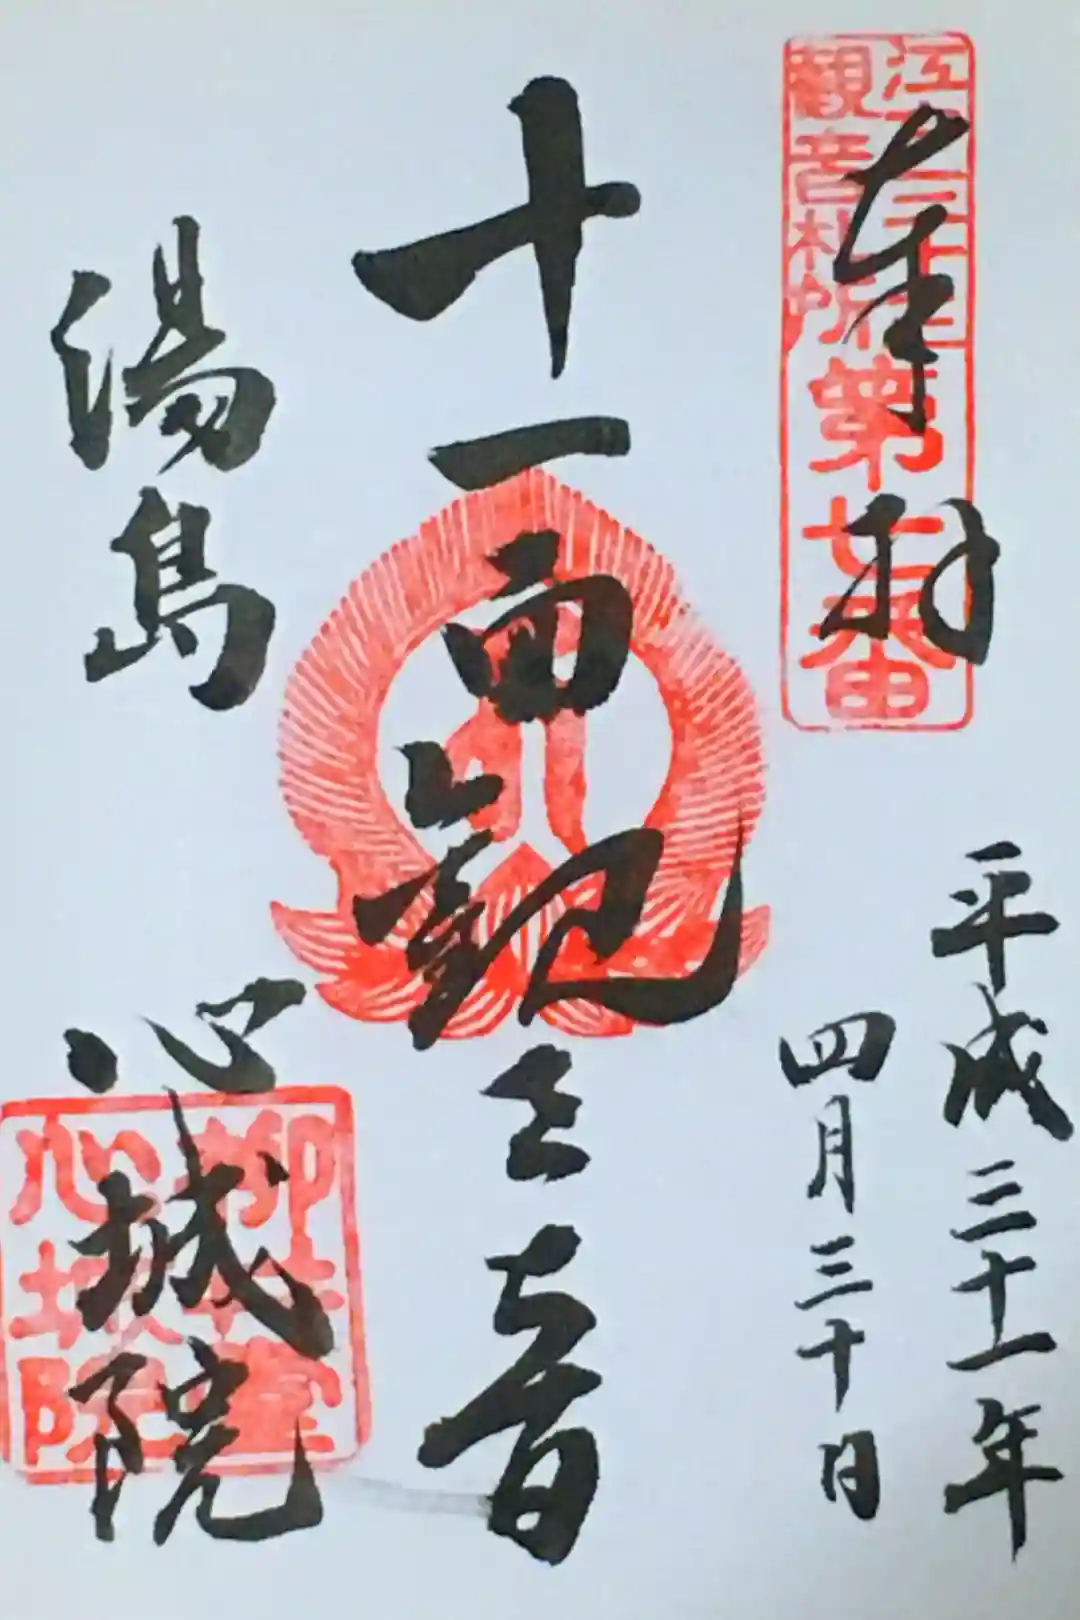 奉拝
江戸三十三
観音札所
第廿八番
平成三十一年
四月三十日
十一面観世音
湯島
心城院
柳井堂
心城院